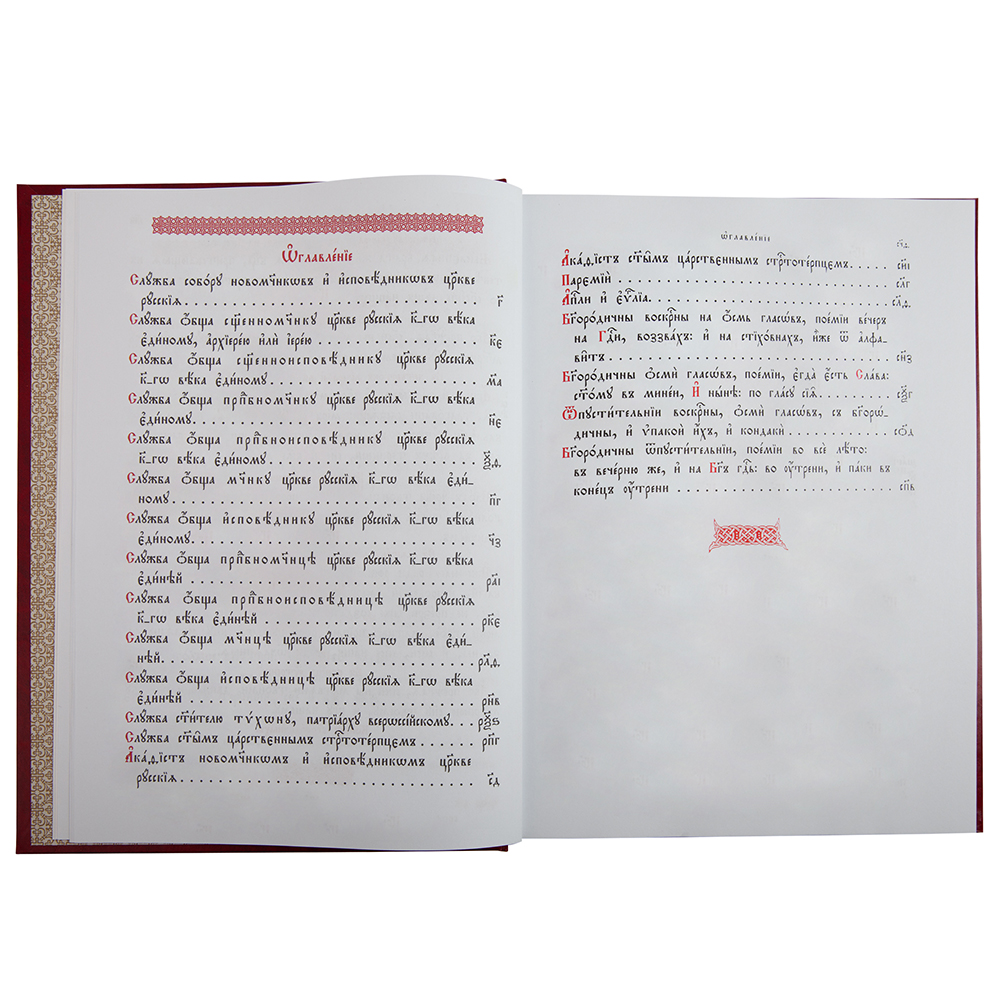 Ѡ҆главле́нїе
Слꙋжба собо́рꙋ новомч҃никѡвъ и҆ и҆сповѣ́дникѡвъ цр҃кве
рꙋсскїѧ . . . . . . . . . . . . . . . . . . . . г҃
Слꙋжба ѻ҆́бща сщ҃енномч҃нкꙋ цр҃кве рꙋсскїѧ к҃-гѡ вѣ́ка
є҆ди́номꙋ, а҆рхїере́ю и҆лѝ і҆ере́ю . . . . . . . . . . . . к҃є
Слꙋжба ѻ҆́бща сщ҃енноисповѣ́дникꙋ цр҃кве рꙋсскїѧ
к҃-гѡ вѣ́ка є҆ди́номꙋ . . . . . . . . . . . . . . . м҃а
Слꙋжба ѻ҆́бща прпⷣбномч҃нкꙋ цр҃кве рꙋсскїѧ к҃-гѡ вѣ́ка
є҆ди́номꙋ. . . . . . . . . . . . . . . . . . . . н҃є
Слꙋжба ѻ҆́бща прпⷣбноисповѣ́дникꙋ цр҃кве рꙋсскїѧ
к҃-гѡ вѣ́ка є҆ди́номꙋ. . . . . . . . . . . . . . . ѯ҃ѳ
Слꙋжба ѻ҆́бща мч҃нкꙋ цр҃кве рꙋсскїѧ к҃-гѡ вѣ́ка є҆ди́-
номꙋ. . . . . . . . . . . . . . . . . . . . . п҃г
Слꙋжба ѻ҆́бща и҆сповѣ́дникꙋ цр҃кве рꙋсскїѧ к҃-гѡ вѣ́ка
є҆ди́номꙋ. . . . . . . . . . . . . . . . . . . . ч҃з
Слꙋжба ѻ҆́бща прпⷣбномч҃нцѣ цр҃кве рꙋсскїѧ к҃-гѡ вѣ́ка
є҆ди́нѣй . . . . . . . . . . . . . . . . . . . . ра҃і
Слꙋжба ѻ҆́бща прпⷣбноисповѣ́дницѣ цр҃кве рꙋсскїѧ
к҃-гѡ вѣ́ка є҆ди́нѣй . . . . . . . . . . . . . . . рк҃є
Слꙋжба ѻ҆́бща мч҃нцѣ цр҃кве рꙋсскїѧ к҃-гѡ вѣ́ка є҆ди́-
нѣй. . . . . . . . . . . . . . . . . . . . . . рл҃ѳ
Слꙋжба ѻ҆́бща и҆сповѣ́дницѣ цр҃кве рꙋсскїѧ к҃-гѡ вѣ́ка
є҆ди́нѣй . . . . . . . . . . . . . . . . . . . . рн҃в
Слꙋжба ст҃и́телю тѵ́хѡнꙋ, патрїа́рхꙋ всерѡссі́йскомꙋ. . . рѯ҃ѕ
Слꙋжба ст҃ы̑мъ ца́рственнымъ стрⷭ҇тоте́рпцємъ . . . . . . рп҃г
А҆ка́ѳїстъ новомч҃никѡмъ и҆ и҆сповѣ́дникѡмъ цр҃кве
рꙋсскїѧ . . . . . . . . . . . . . . . . . . . . с҃д
ѡ҆главле́нїе
А҆ка́ѳїстъ ст҃ы̑мъ ца́рственнымъ стрⷭ҇тоте́рпцємъ. . . . . си҃і
Паремїи̑ . . . . . . . . . . . . . . . . . . . . сл҃г
А҆пⷭ҇ли и҆ є҆ѵⷢ҇лїа. . . . . . . . . . . . . . . . . . сл҃ѳ
Бг҃оро́дичны воскрⷭ҇ны на ѻ҆́смь гласѡ́въ, поє́мїи ве́черъ
на Гдⷭ҇и, воззва́хъ: и҆ на стїхо́внахъ, и҆̀же ѿ а҆лфа-
ви́тъ . . . . . . . . . . . . . . . . . . . . . сн҃з
Бг҃оро́дичны ѻ҆смѝ гласѡ́въ, поє́мїи, є҆гда̀ є҆́сть Сла́ва:
ст҃о́мꙋ въ мине́и, И҆ ны́нѣ: по гла́сꙋ сїѧ̑. . . . . . сѯ҃г
Ѿпꙋсти́тельнїи воскрⷭ҇ны, ѻ҆смѝ гласѡ́въ, съ бг҃оро́-
дичны, и҆ ѵ҆пакоѝ и҆́хъ, и҆ кондакѝ . . . . . . . . . со҃д
Бг҃оро́дичны ѿпꙋсти́тельнїи, поє́мїи во всѐ лѣ́то:
въ вече́рню же, и҆ на Бг҃ъ гдⷭ҇ь: во ᲂу҆́трени, и҆ па́ки въ
коне́цъ ᲂу҆́трени . . . . . . . . . . . . . . . . . сп҃в